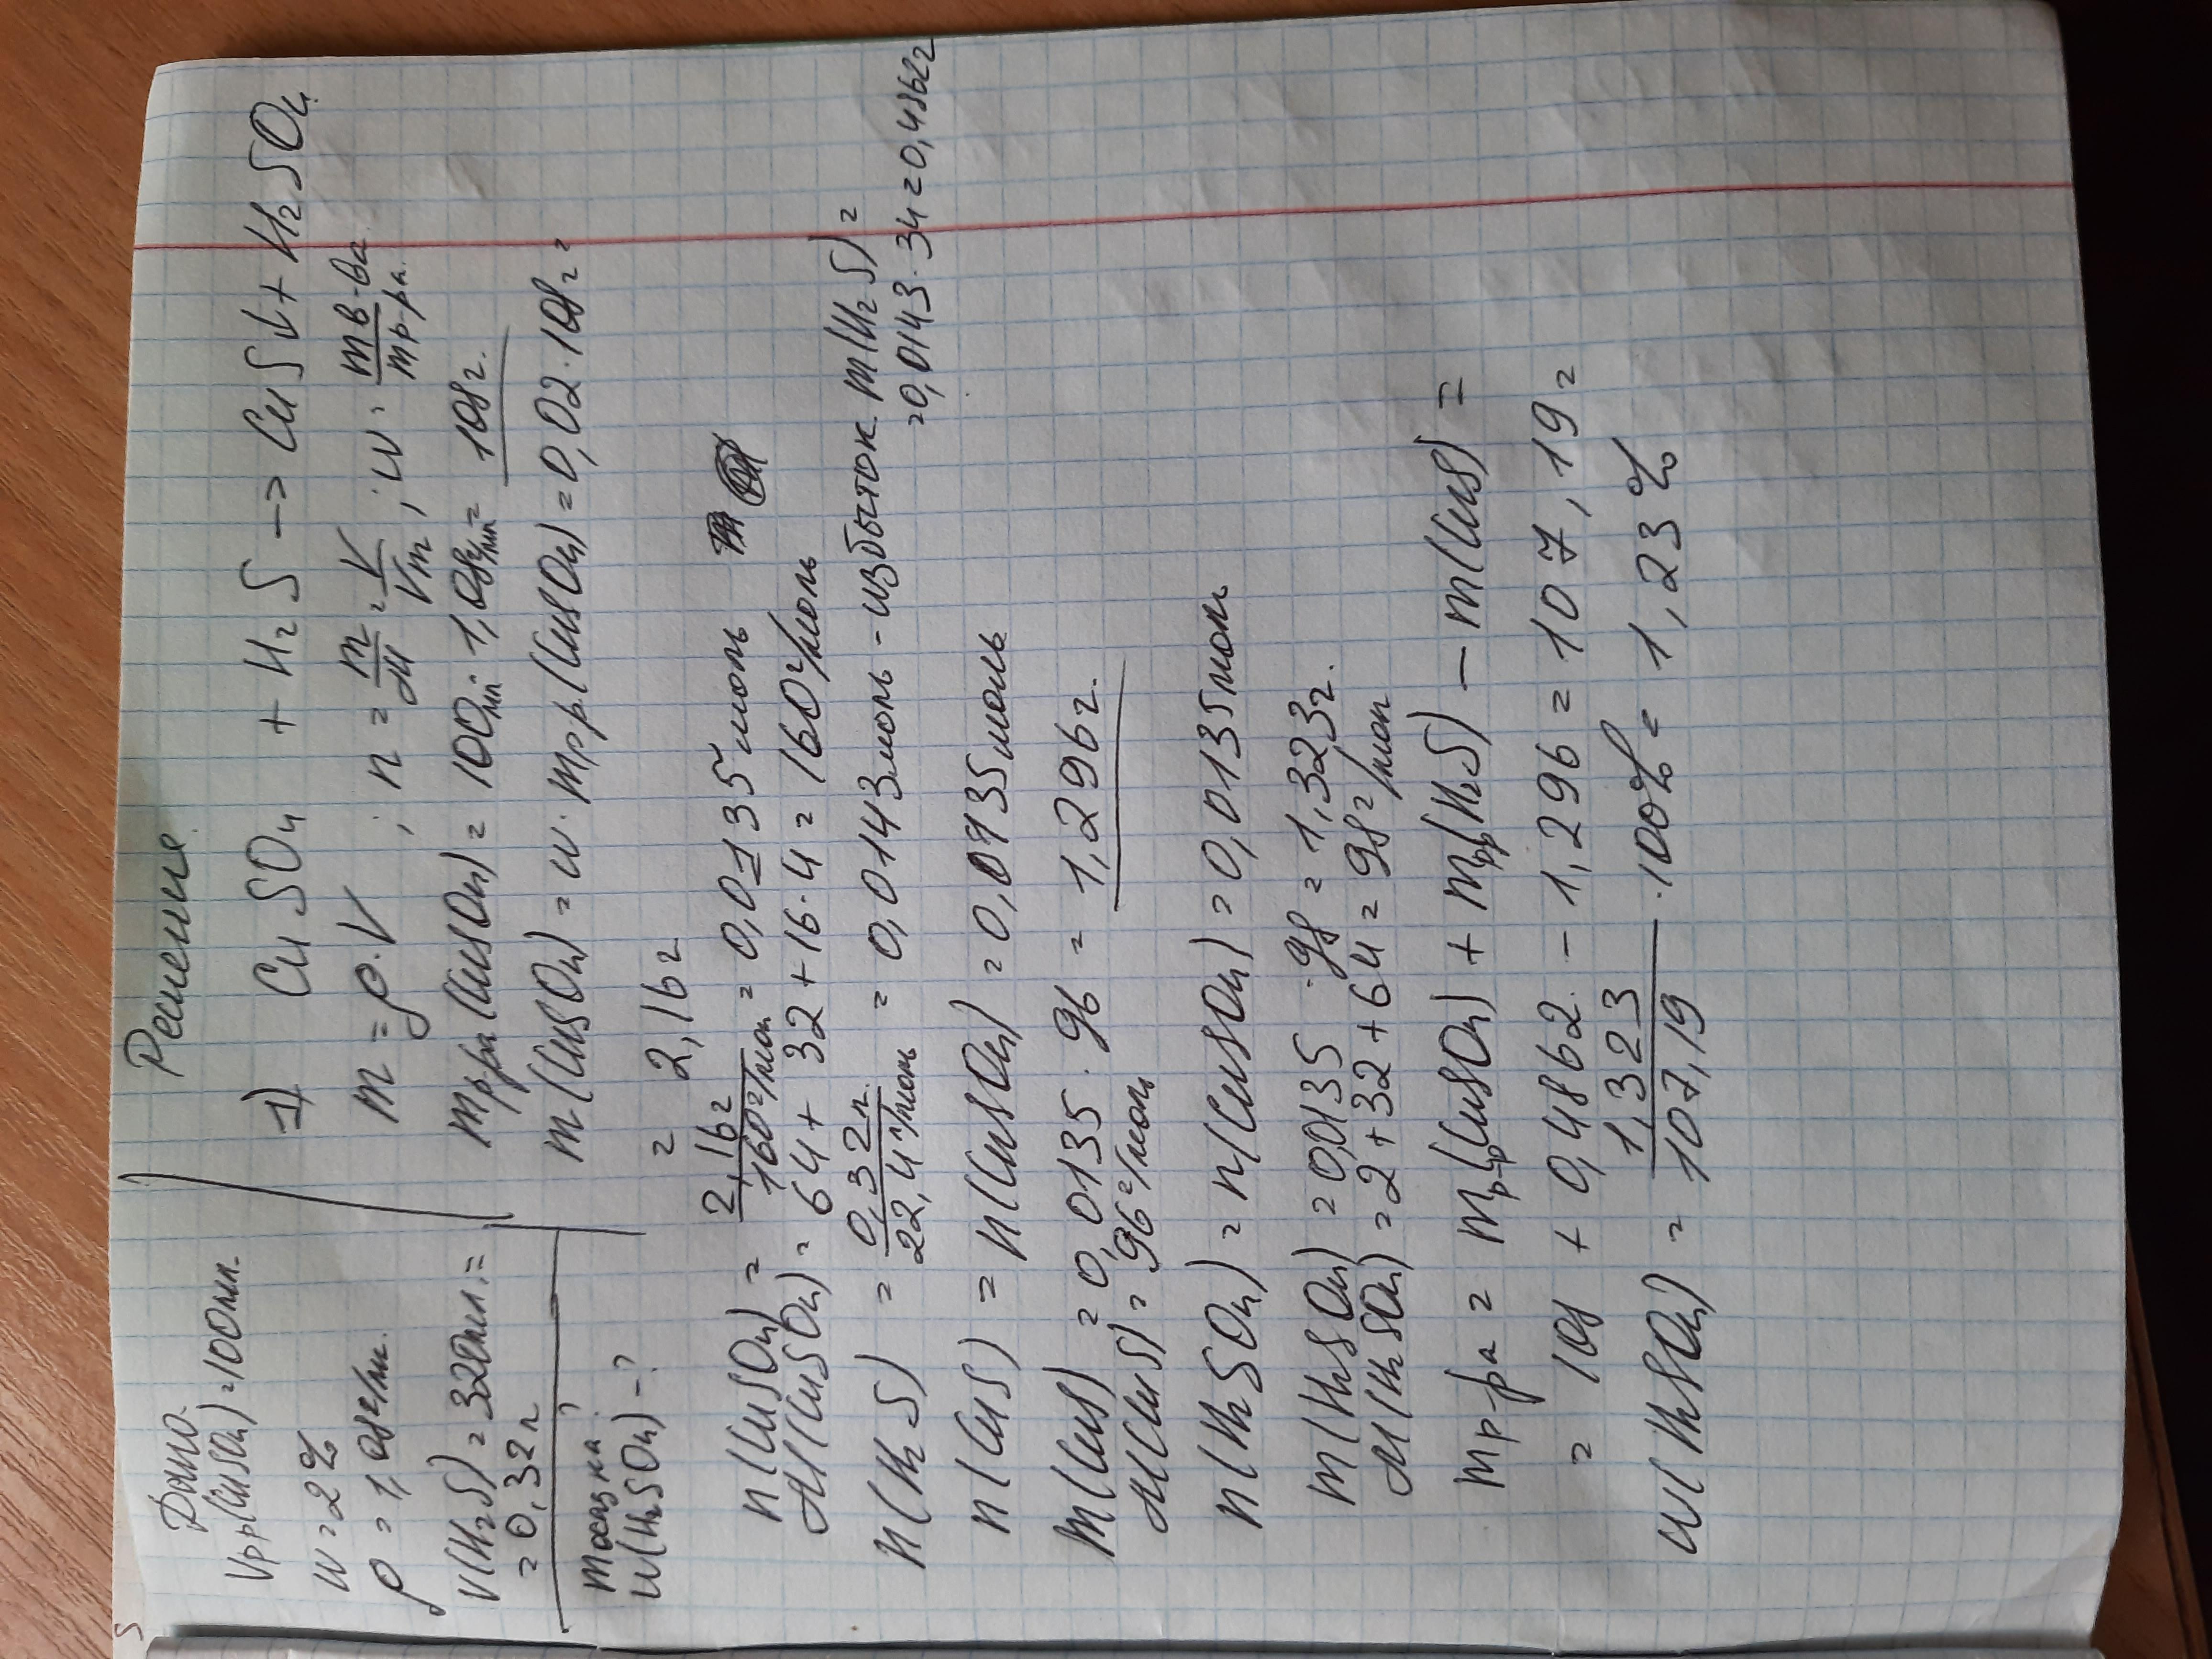 Дано.
Vр р(CuSO₄) = 100мл.
w = 2%
ρ = 1,08г/мл.
V(H₂S) = 320мл. =
= 0,32л
mосадка?
w(H₂SO₄) - ?
Решение.
1) CuSO₄ + H₂S → CuS↓ + H₂SO₄
m = ρ·V ; n = m/M = V/Vm ; w = mв-ва/mр-ра.
mр-ра(CuSO₄) = 100мл · 1,08г/мл = 108г.
m(CuSO₄) = w · mр р.(CuSO₄) = 0,02 · 108г =
= 2,16г
n(CuSO₄) = 2,16г/160г/моль = 0,0135моль
M(CuSO₄) = 64 + 32 + 16·4 = 160г/моль
n(H₂S) = 0,32л/22,4г/моль = 0,0143моль - избыток. m(H₂S) =
= 0,0143 · 34 = 0,4862г
n(CuS) = n(CuSO₄) = 0,0135моль
m(CuS) = 0,0135 · 96 = 1,296г.
M(CuS) = 96г/моль
n(H₂SO₄) = n(CuSO₄) = 0,0135моль
m(H₂SO₄) = 0,0135 · 98 = 1,323г.
M(H₂SO₄) = 2 + 32 + 64 = 98г/мол
mр-ра = mр-р(CuSO₄) + mрр(H₂S) - m(CuS) =
= 108 + 0,4862 - 1,296 = 107,19 =
w(H₂SO₄) = 1,323/107,19 · 100% = 1,23%